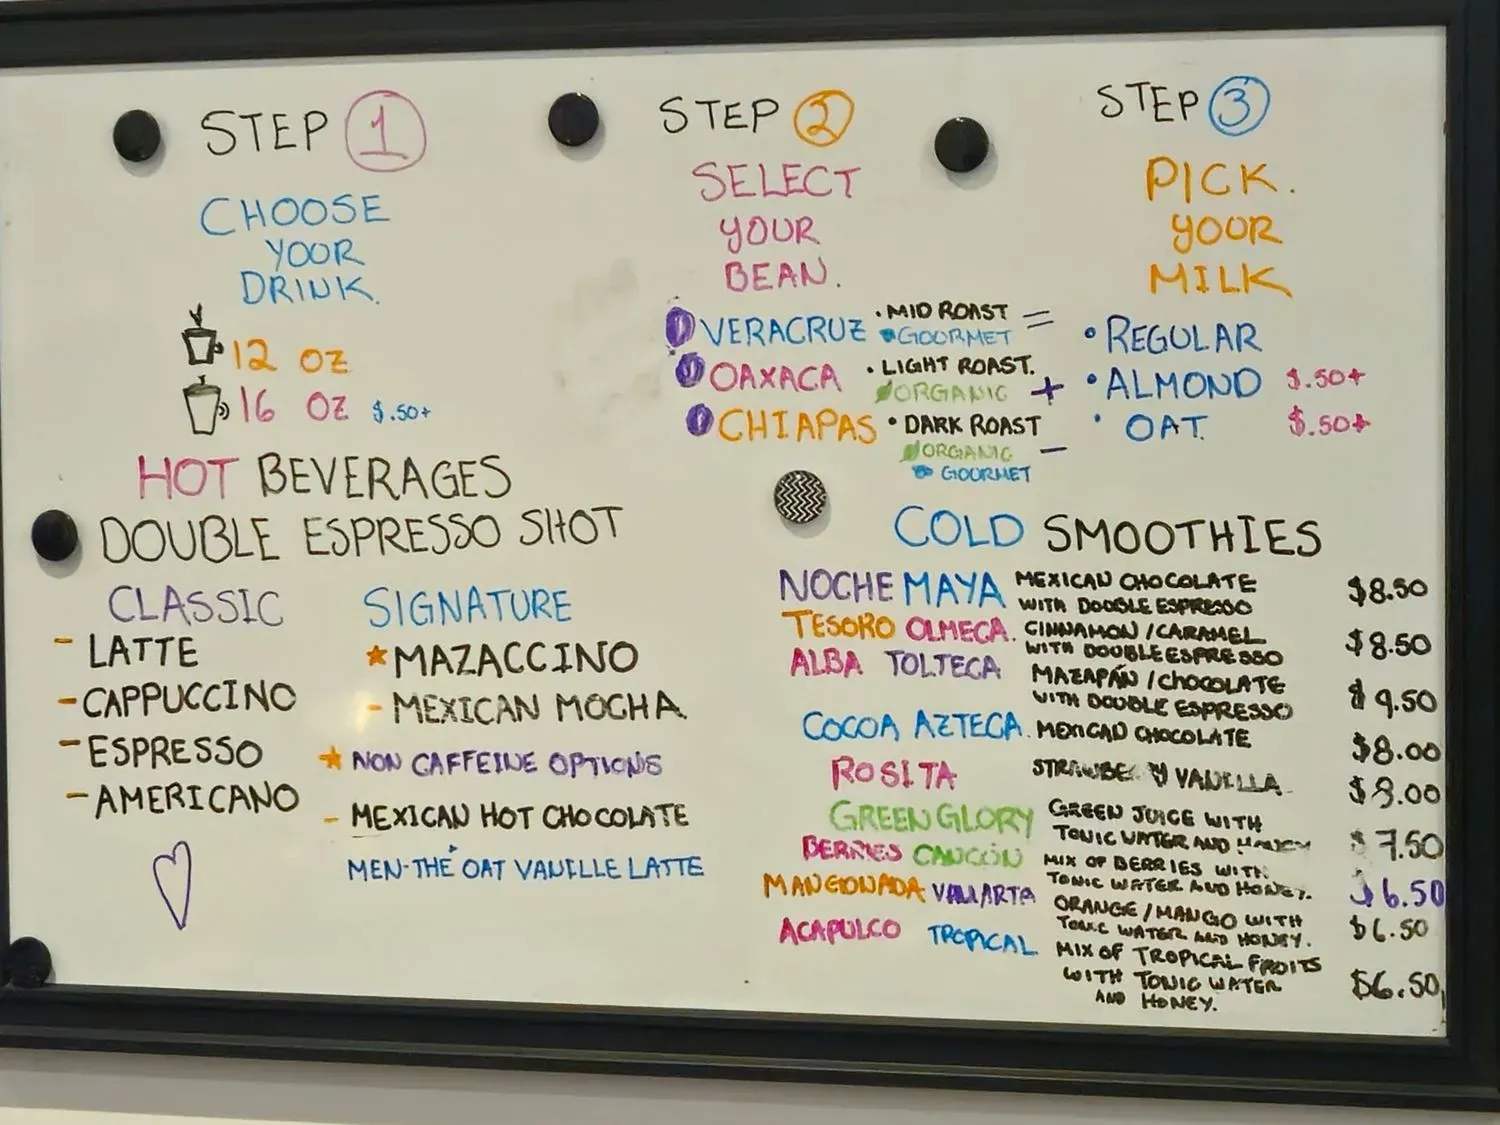 STEP 1
CHOOSE
YOUR
DRINK.
12 OZ
16 OZ $.50+
STEP 2
SELECT
YOUR
BEAN.
VERACRUZ • MID ROAST =
GOURMET
OAXACA • LIGHT ROAST.
ORGANIC +
CHIAPAS • DARK ROAST
ORGANIC −
GOURMET
STEP 3
PICK.
YOUR
MILK
• REGULAR
• ALMOND $.50+
• OAT. $.50+
HOT BEVERAGES
DOUBLE ESPRESSO SHOT
CLASSIC
- LATTE
- CAPPUCCINO
- ESPRESSO
- AMERICANO
SIGNATURE
★ MAZACCINO
- MEXICAN MOCHA
★ NON CAFFEINE OPTIONS
- MEXICAN HOT CHOCOLATE
MEN-THÉ OAT VANILLE LATTE
COLD SMOOTHIES
NOCHE MAYA MEXICAN CHOCOLATE $8.50
WITH DOUBLE ESPRESSO
TESORO OLMECA. CINNAMON / CARAMEL $8.50
WITH DOUBLE ESPRESSO
ALBA TOLTECA MAZAPÁN / CHOCOLATE $9.50
WITH DOUBLE ESPRESSO
COCOA AZTECA. MEXICAN CHOCOLATE $8.00
ROSITA VANILLA
GREEN GLORY GREEN JUICE WITH $7.50
TONIC WATER AND HONEY
BERRIES CANCÚN MIX OF BERRIES WITH $6.50
TONIC WATER AND HONEY.
MANGONADA VALLARTA ORANGE / MANGO WITH $6.50
TONIC WATER AND HONEY.
ACAPULCO TROPICAL MIX OF TROPICAL FRUITS $6.50
WITH TONIC WATER
AND HONEY.